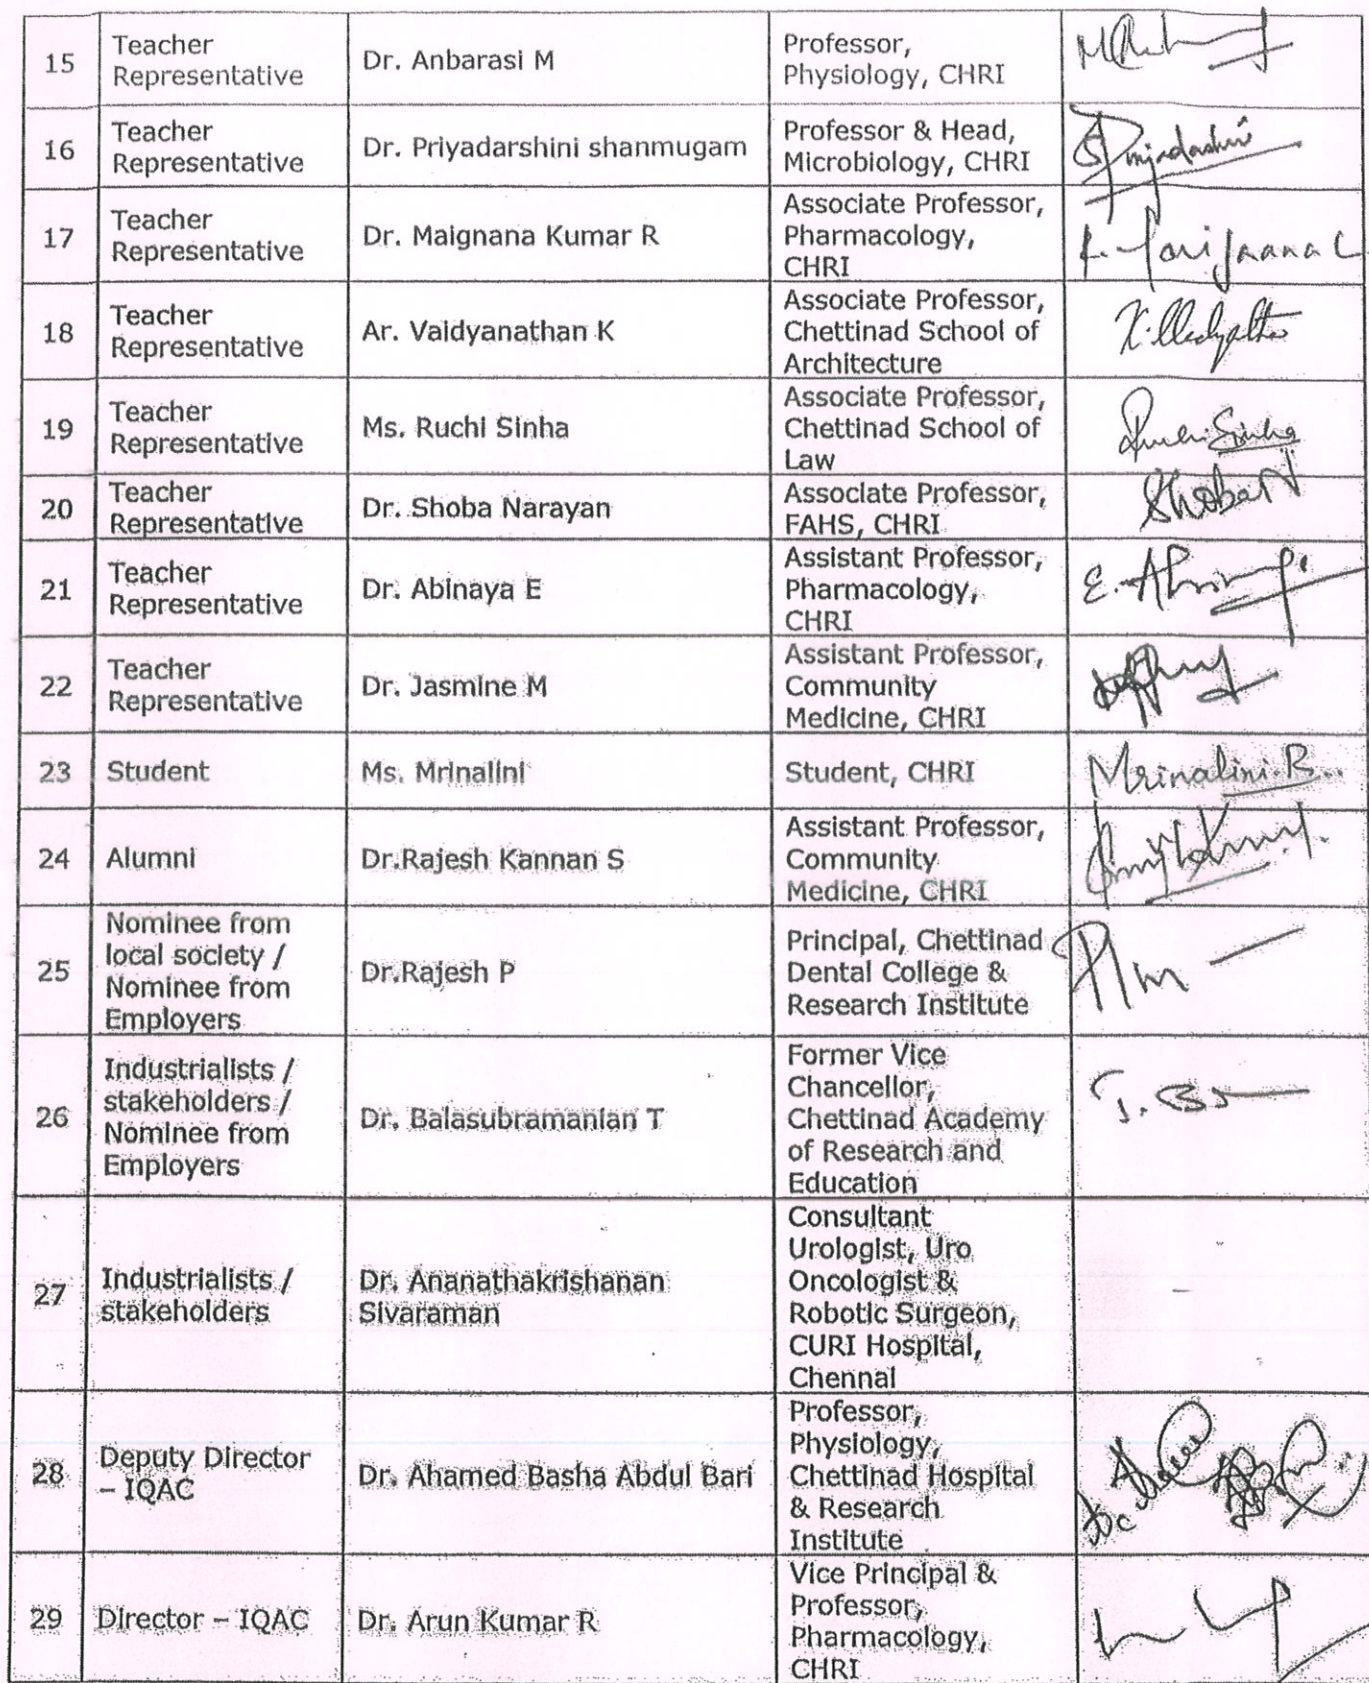 15
Teacher
Representative
Dr. Anbarasi M
Professor,
Physiology, CHRI
16
Teacher
Representative
Dr. Priyadarshini shanmugam
Professor & Head,
Microbiology, CHRI
17
Teacher
Representative
Dr. Maignana Kumar R
Associate Professor,
Pharmacology,
CHRI
18
Teacher
Representative
Ar. Vaidyanathan K
Associate Professor,
Chettinad School of
Architecture
19
Teacher
Representative
Ms. Ruchi Sinha
Associate Professor,
Chettinad School of
Law
Ruchi Sinha
20
Teacher
Representative
Dr. Shoba Narayan
Associate Professor,
FAHS, CHRI
Shoba N
21
Teacher
Representative
Dr. Abinaya E
Assistant Professor,
Pharmacology,
CHRI
22
Teacher
Representative
Dr. Jasmine M
Assistant Professor,
Community
Medicine, CHRI
23
Student
Ms. Mrinalini
Student, CHRI
Mrinalini.B.
24
Alumni
Dr.Rajesh Kannan S
Assistant Professor,
Community
Medicine, CHRI
25
Nominee from
local society /
Nominee from
Employers
Dr.Rajesh P
Principal, Chettinad
Dental College &
Research Institute
26
Industrialists /
stakeholders /
Nominee from
Employers
Dr. Balasubramanian T
Former Vice
Chancellor,
Chettinad Academy
of Research and
Education
27
Industrialists /
stakeholders
Dr. Ananathakrishanan
Sivaraman
Consultant
Urologist, Uro
Oncologist &
Robotic Surgeon,
CURI Hospital,
Chennai
28
Deputy Director
– IQAC
Dr. Ahamed Basha Abdul Bari
Professor,
Physiology,
Chettinad Hospital
& Research
Institute
29
Director – IQAC
Dr. Arun Kumar R
Vice Principal &
Professor,
Pharmacology,
CHRI